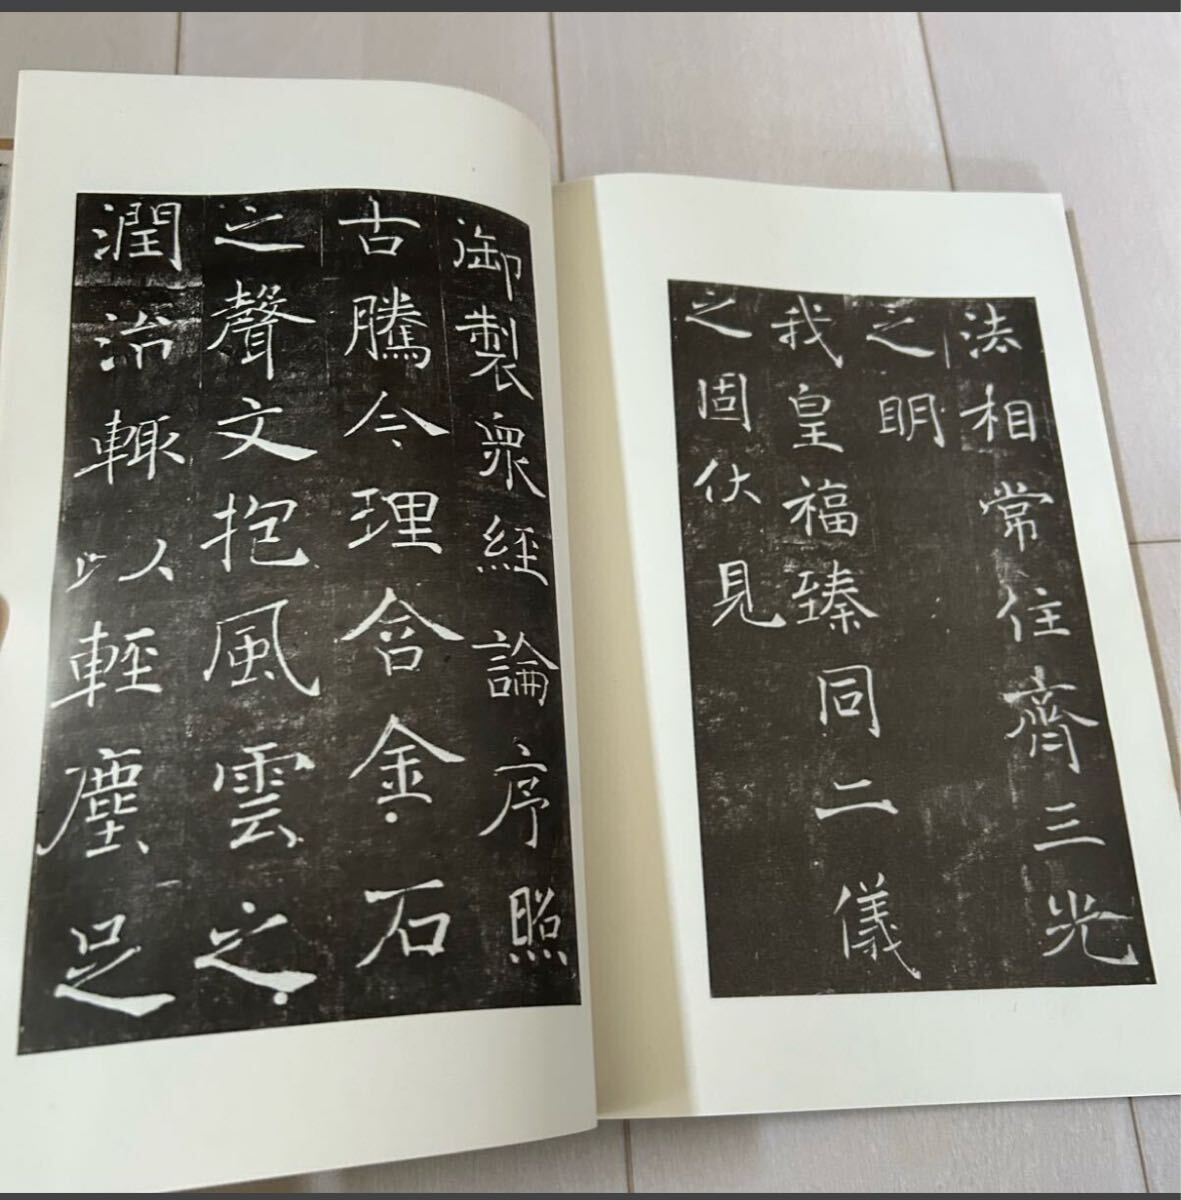 法相常住齊三光
之明
我皇福臻同二儀
之固伏見
御製衆經論序照
古騰今理含金石
之聲文抱風雲之
潤治輒以輕塵足